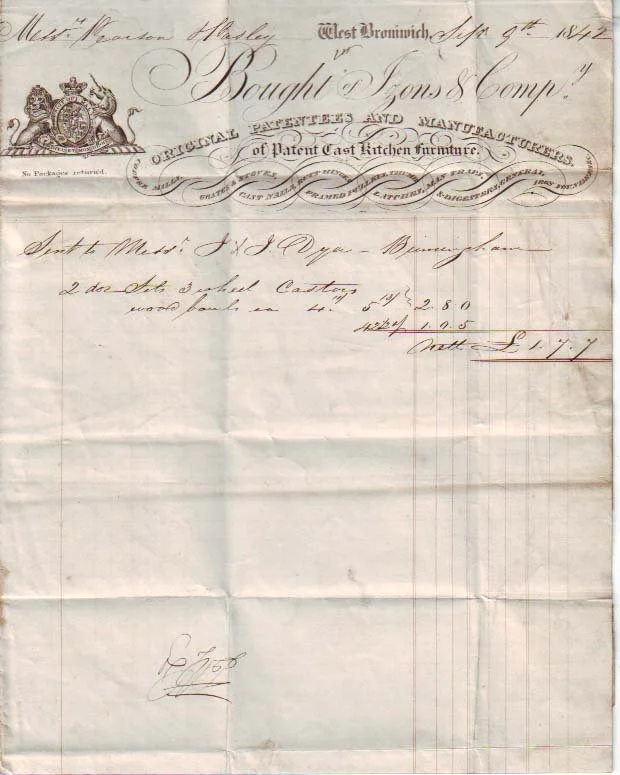 Messrs Pearson & Pasley West Bromwich, Sepr 9th 1842
Bought of Izons & Compy.
ORIGINAL PATENTEES AND MANUFACTURERS,
of Patent Cast Kitchen Furniture.
No Packages return'd.
COFFEE MILLS, GRATES & STOVES, CAST NAILS, BUTT HINGES, FRAMED PULLIES, THUMB LATCHES, MAN TRAPS, & DIGESTERS, GENERAL IRON FOUNDERS.
Sent to Messrs J & J. Dyer - Birmingham
2 doz Sets 3 wheel Castors
wood bowls 4. 5 2.8.0
42½ 1.0.5
Nett £1.7.7